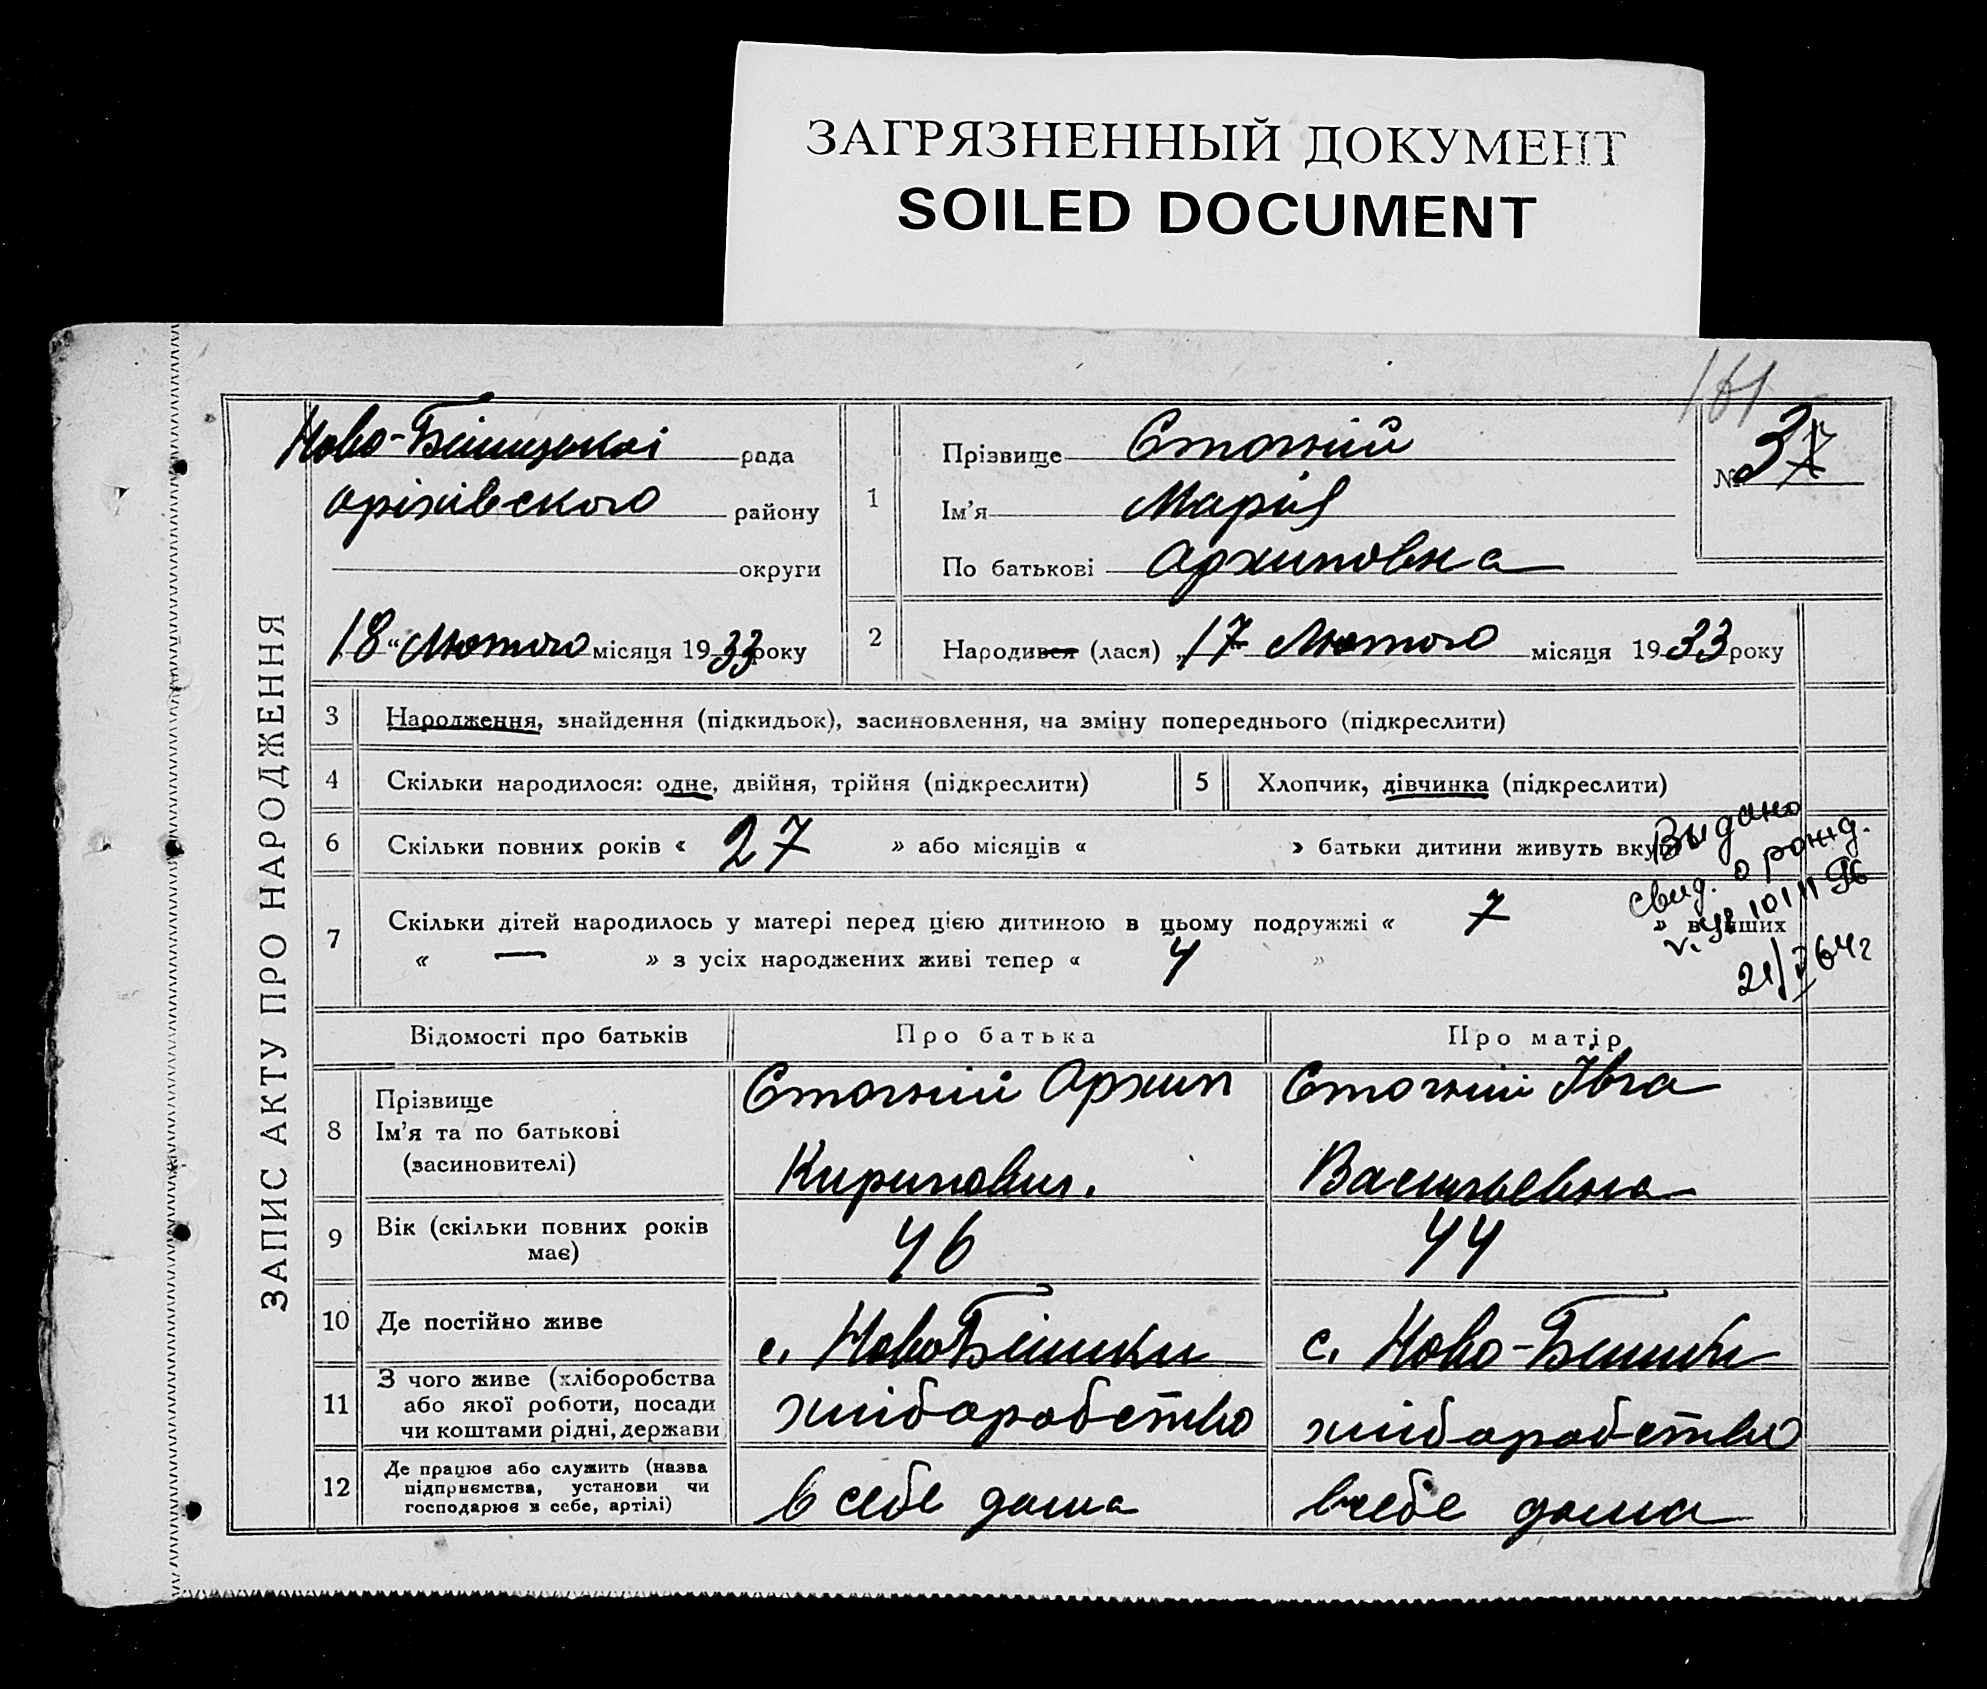 ЗАГРЯЗНЕННЫЙ ДОКУМЕНТ
SOILED DOCUMENT
161
ЗАПИС АКТУ ПРО НАРОДЖЕННЯ
рада
оріхівского району
округи
18 “ Лютого місяця 1933 року
1
Прізвище Стогній
Ім’я Марія
По батькові Архиповна
№ 3
2 Народився (лася) „ 17 Лютого місяця 1933 року
3 Народження, знайдення (підкидьок), засиновлення, на зміну попереднього (підкреслити)
4 Скільки народилося: одне, двійня, трійня (підкреслити)
5 Хлопчик, дівчинка (підкреслити)
6 Скільки повних років « 27 » або місяців « » батьки дитини живуть вкупі
7 Скільки дітей народилось у матері перед цією дитиною в цьому подружжі « 7 » в інших
« — » з усіх народжених живі тепер « 4 »
Выдано
свид. о рожд.
21/I 64г
Відомості про батьків
Про батька
Про матір
8 Прізвище
Ім’я та по батькові
(засиновителі)
Стогній Архип
Кирилович.
Стогній Івга
Васильевна
9 Вік (скільки повних років
має)
46
44
10 Де постійно живе
с.
с.
11 З чого живе (хліборобства
або якої роботи, посади
чи коштами рідні, держави
хліборобство
хліборобство
12 Де працює або служить (назва
підприємства, установи чи
господарює в себе, артілі)
в себе дома
в себе дома